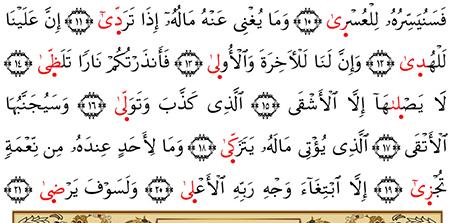 فَسَنُيَسِّرُهُۥ لِلْعُسْرَىٰ ﴿١٠﴾ وَمَا يُغْنِى عَنْهُ مَالُهُۥٓ إِذَا تَرَدَّىٰٓ ﴿١١﴾ إِنَّ عَلَيْنَا
لَلْهُدَىٰ ﴿١٢﴾ وَإِنَّ لَنَا لَلْأَخِرَةَ وَالْأُولَىٰ ﴿١٣﴾ فَأَنذَرْتُكُمْ نَارًا تَلَظَّىٰ ﴿١٤﴾
لَا يَصْلَىٰهَآ إِلَّا الْأَشْقَى ﴿١٥﴾ الَّذِى كَذَّبَ وَتَوَلَّىٰ ﴿١٦﴾ وَسَيُجَنَّبُهَا
الْأَتْقَى ﴿١٧﴾ الَّذِى يُؤْتِى مَالَهُۥ يَتَزَكَّىٰ ﴿١٨﴾ وَمَا لِأَحَدٍ عِندَهُۥ مِن نِّعْمَةٍ
تُجْزَىٰٓ ﴿١٩﴾ إِلَّا ابْتِغَآءَ وَجْهِ رَبِّهِ الْأَعْلَىٰ ﴿٢٠﴾ وَلَسَوْفَ يَرْضَىٰ ﴿٢١﴾